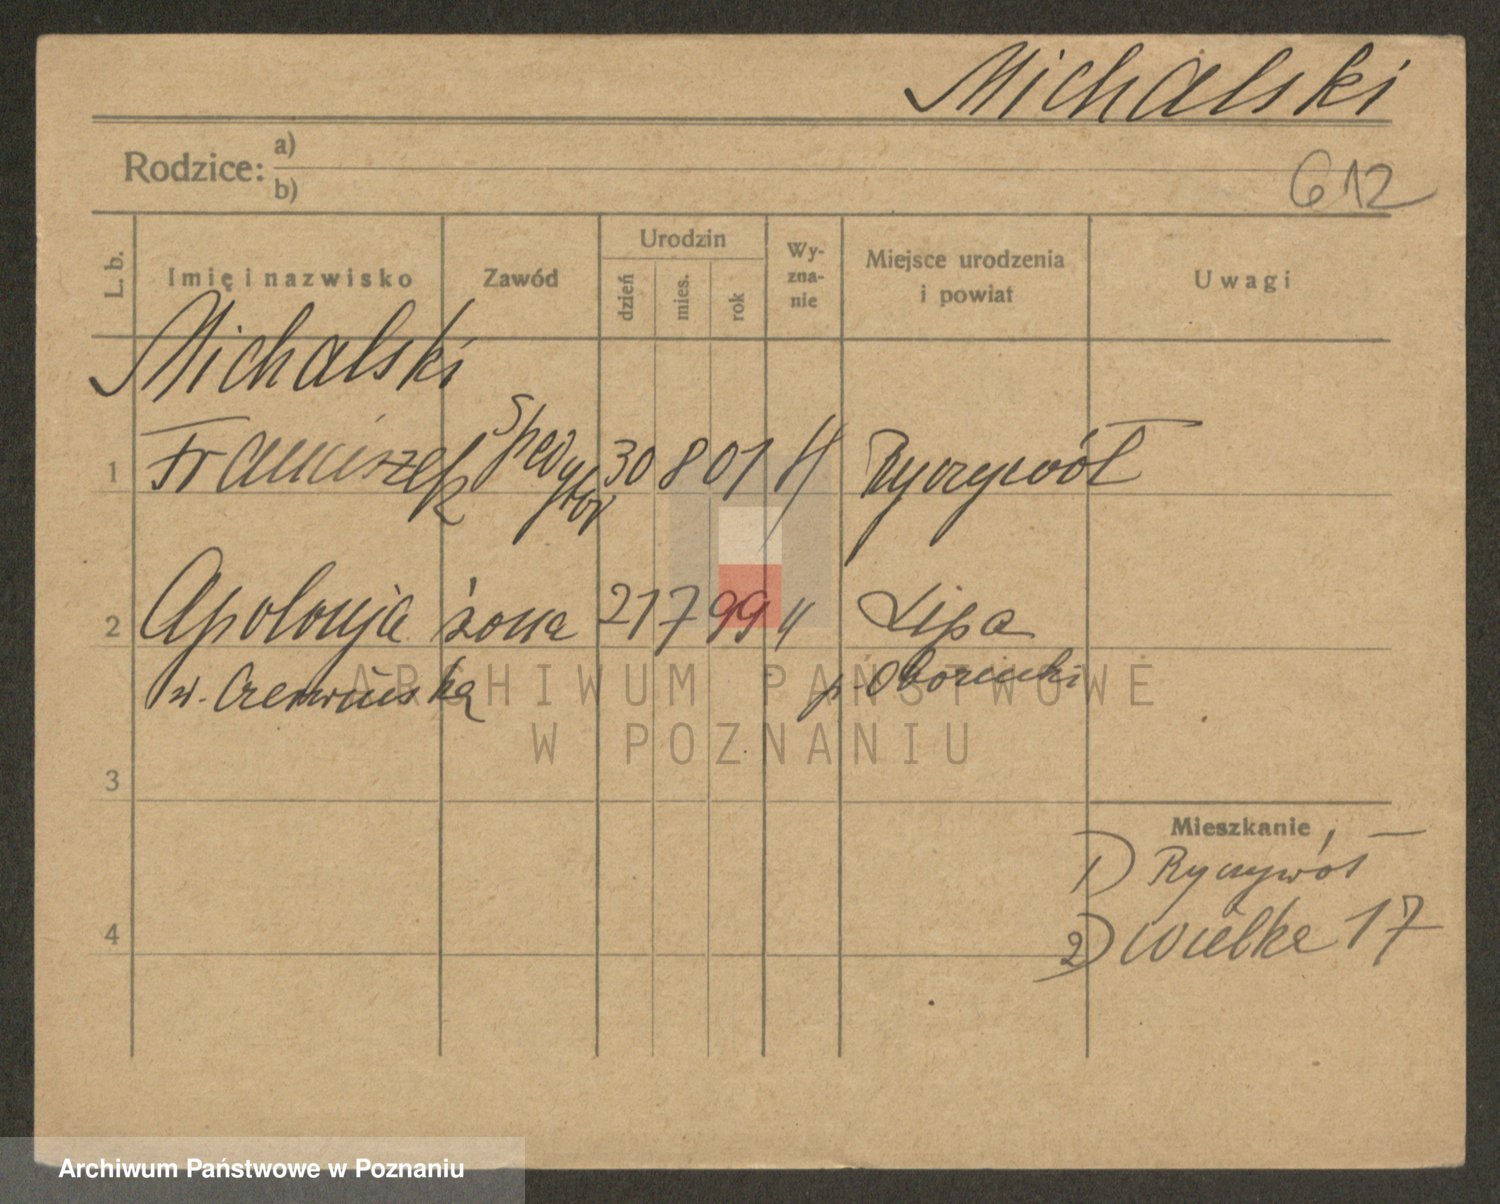 Michalski
Rodzice: a)
b)
612
L. b.
Imię i nazwisko
Zawód
Urodzin
dzień
mies.
rok
Wy-
zna-
nie
Miejsce urodzenia
i powiat
Uwagi
Michalski
1 Franciszek Spedytor 30 8 01 Ryczywół
2 Apolonja żona 21 7 99 " Lipa
w. Czerwińska p. Obornicki
ARCHIWUM PAŃSTWOWE
W POZNANIU
3
Mieszkanie
1) Ryczywół
4
2) Wielke 17
Archiwum Państwowe w Poznaniu